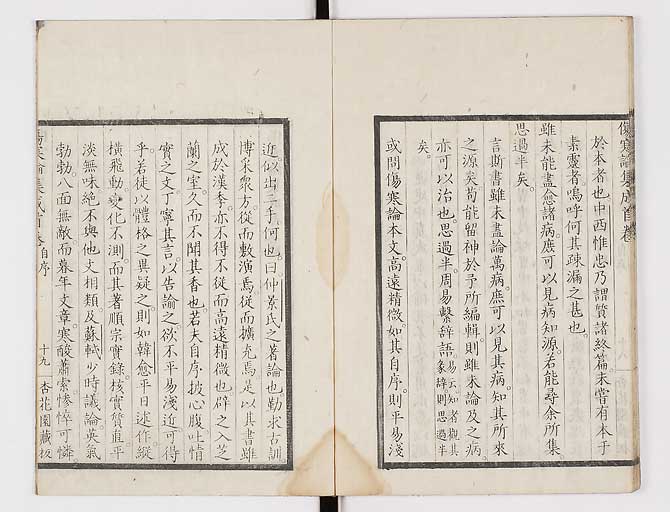 傷寒論集成首卷
於本者也中西惟忠乃謂質諸終篇未嘗有本于
素靈者嗚呼何其疎漏之甚也
雖未能盡愈諸病庶可以見病知源若能尋余所集
思過半矣
言斯書雖未盡論萬病庶可以見其病知其所來
之源矣苟能留神於予所編輯則雖未論及之病
亦可以治也思過半周易繫辭語易云知者觀其彖辭則思過半
矣
或問傷寒論本文高遠精微如其自序則平易淺
近似出二手何也曰仲景氏之著論也勤求古訓
博采衆方從而敷演焉從而擴充焉是以其書雖
成於漢季亦不得不從而高遠精微也辟之入芝
蘭之室久而不聞其香也若夫自序披心腹吐情
實之文丁寧其言以告諭之欲不平易淺近可得
乎若徒以體格之異疑之則如韓愈平日述作縱
橫飛動變化不測而其著順宗實錄核實質直平
淡無味絕不與他文相類及蘇軾少時議論英氣
勃勃八面無敵而暮年文章寒酸蕭索憔悴可憐
傷寒論集成首卷自序 十九 杏花園藏板